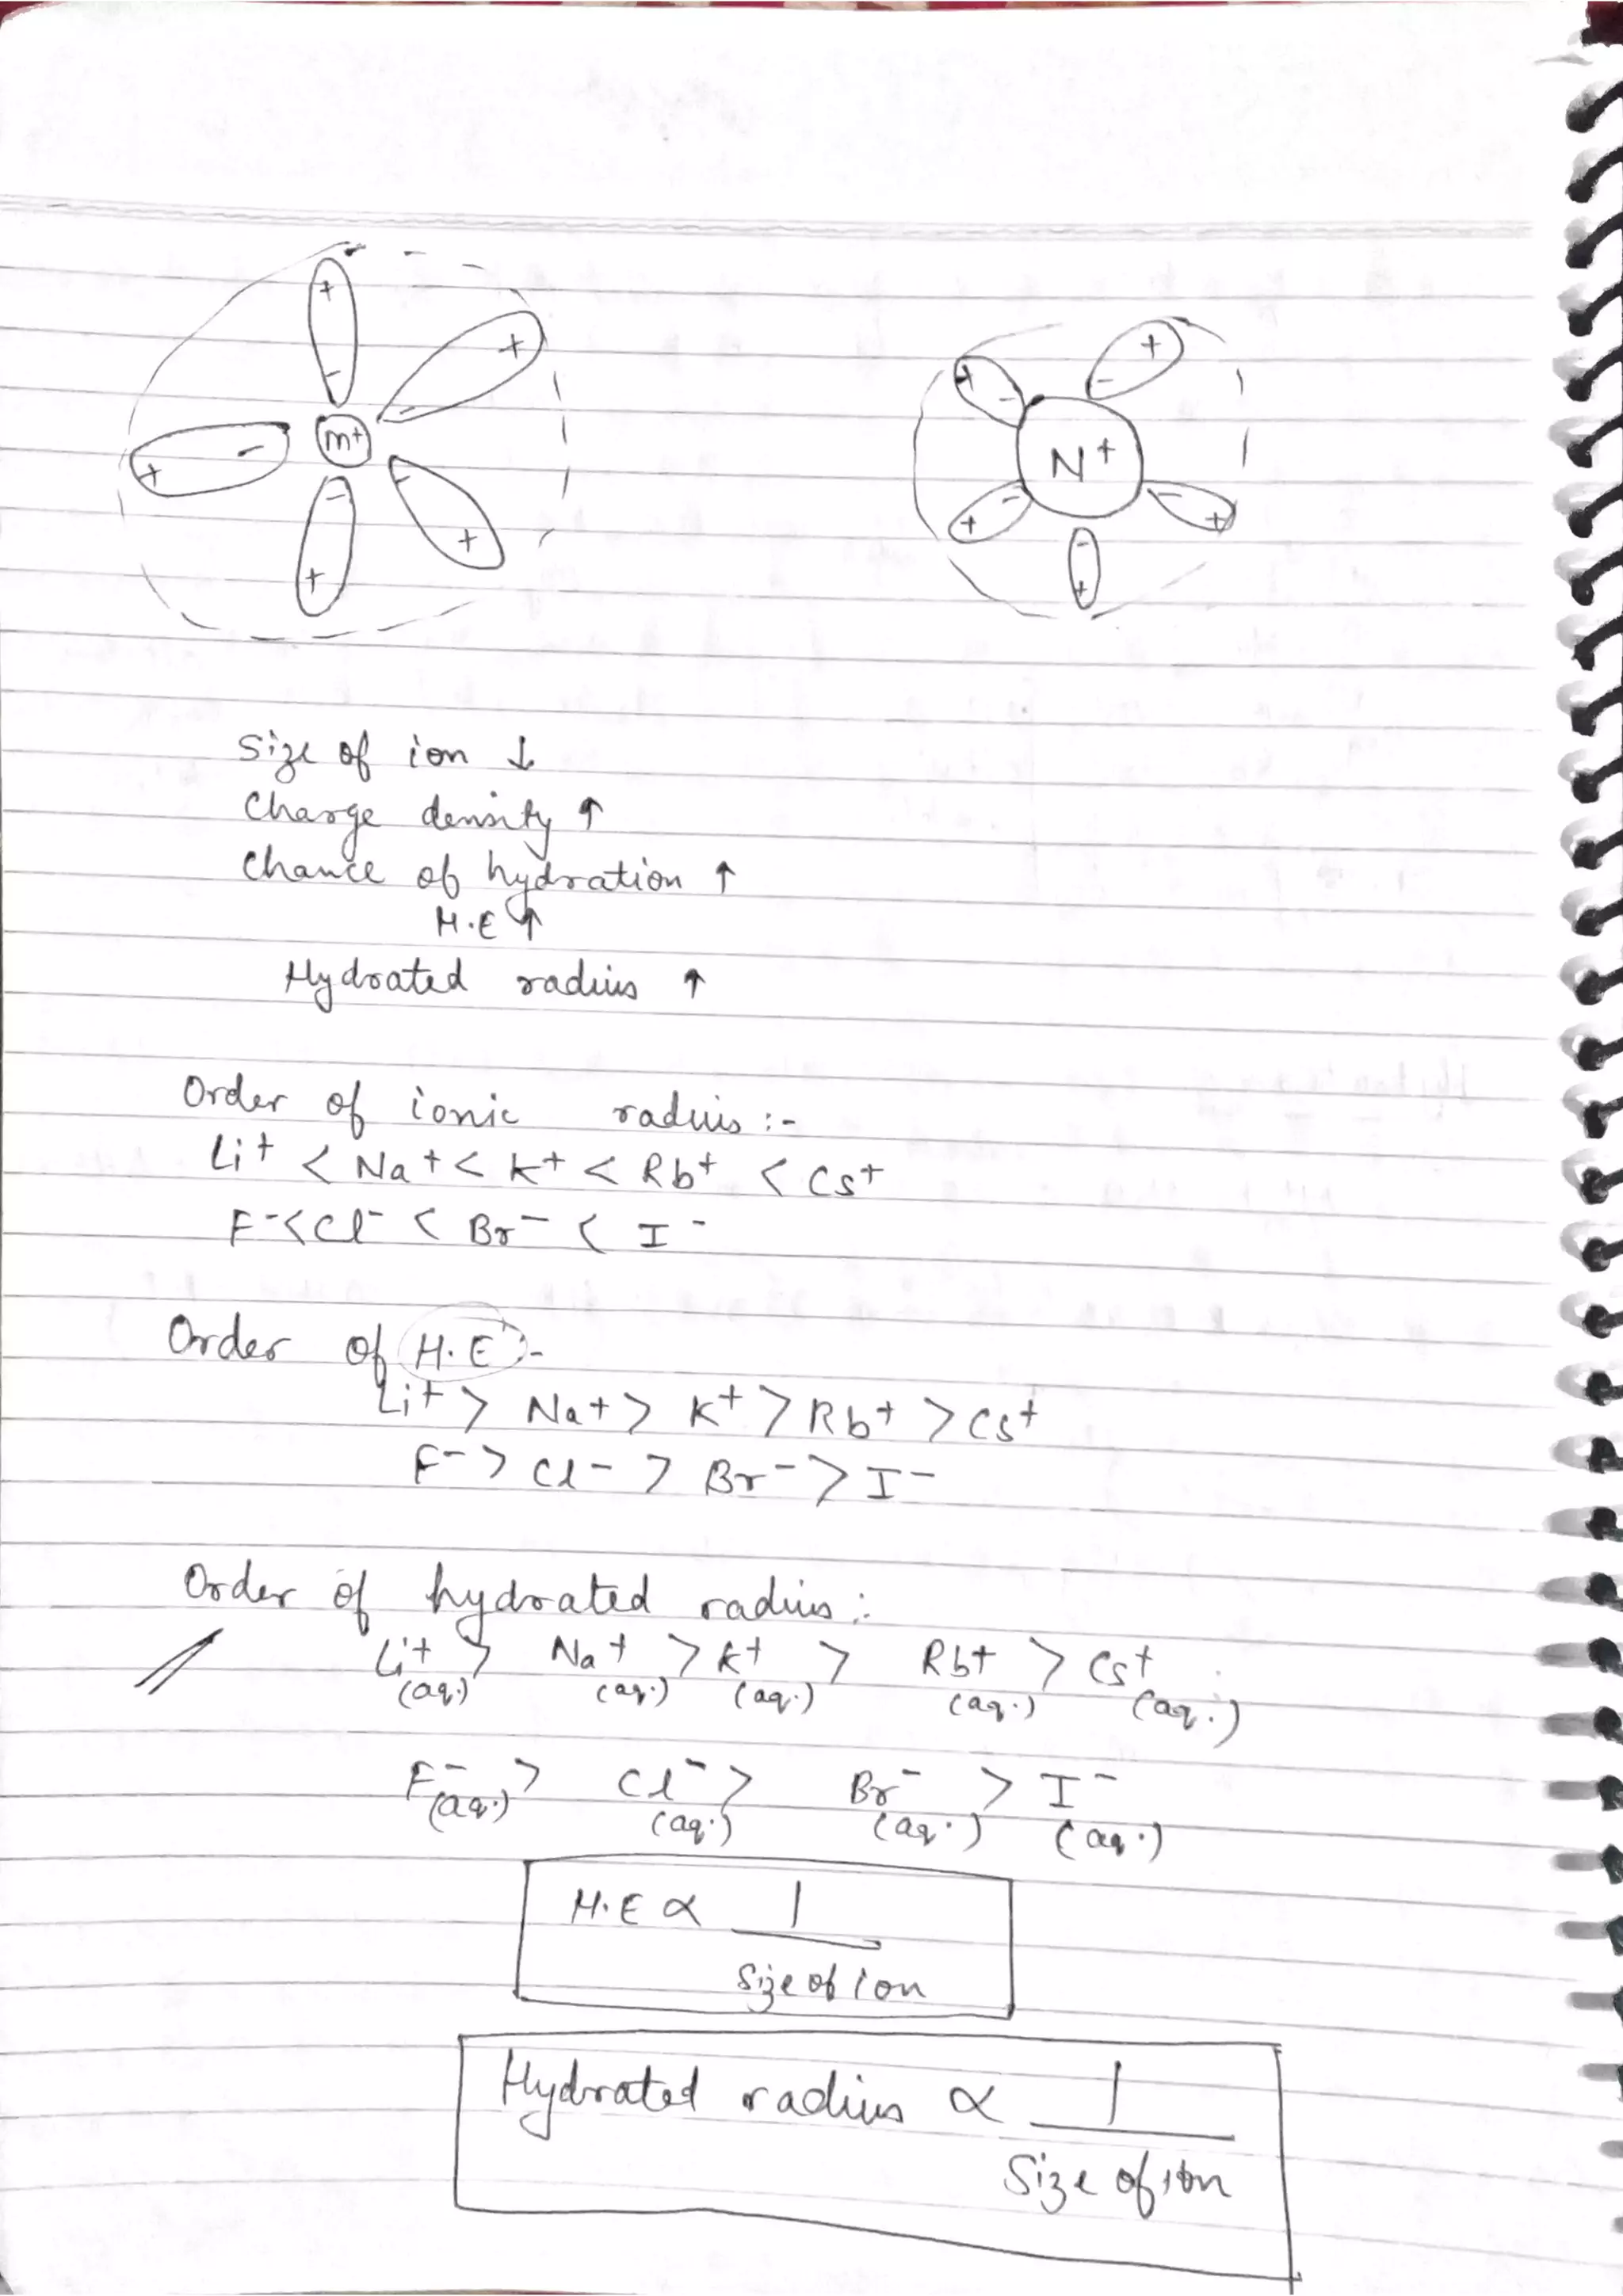 + + + + +
- - - - -
m+
+ + + + +
- - - - -
N+
Size of ion ↓
Charge density ↑
Chance of hydration ↑
H.E ↑
Hydrated radius ↑
Order of ionic radius :-
Li+ < Na+ < K+ < Rb+ < Cs+
F- < Cl- < Br- < I-
Order of H.E :-
Li+ > Na+ > K+ > Rb+ > Cs+
F- > Cl- > Br- > I-
Order of hydrated radius :
Li+ > Na+ > K+ > Rb+ > Cs+
(aq.) (aq.) (aq.) (aq.) (aq.)
F- > Cl- > Br- > I-
(aq.) (aq.) (aq.) (aq.)
H.E ∝ 1
Size of ion
Hydrated radius ∝ 1
Size of ion